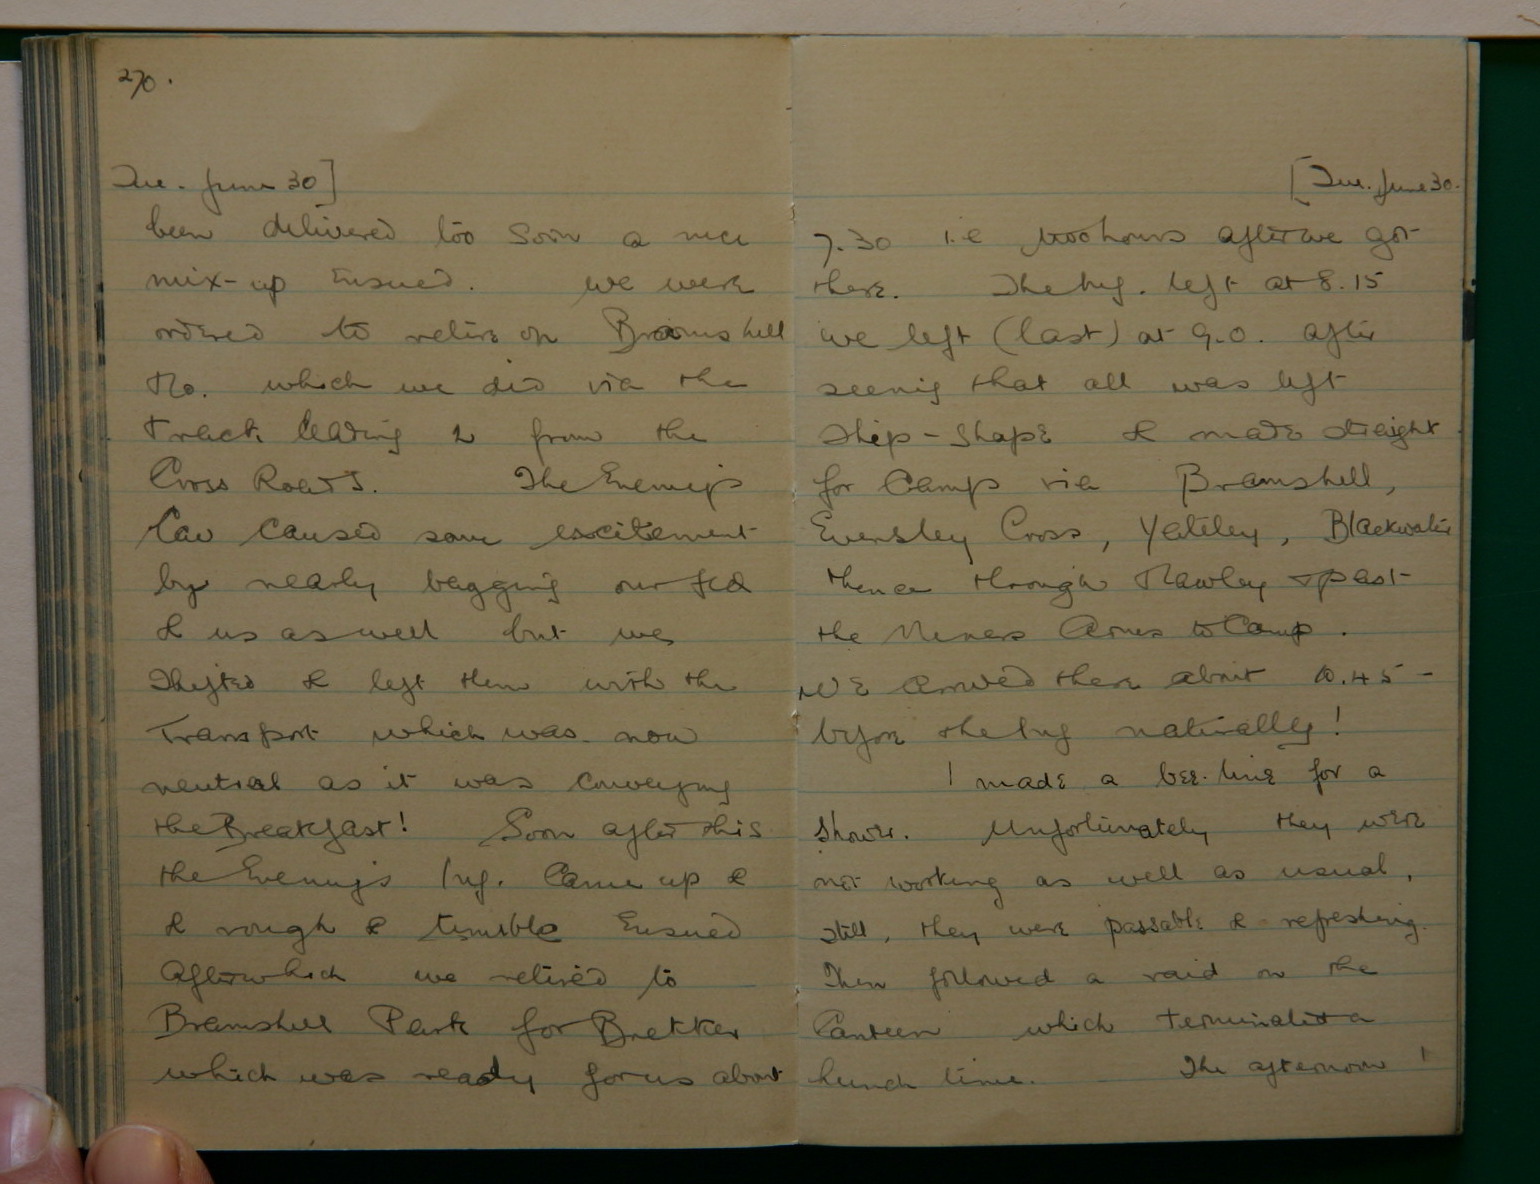 270.
Tue. June 30]
been delivered too soon a nice
mix-up ensued. We were
ordered to retire on Bramshill
Ho. which we did via the
track leading to from the
Cross Roads. The Enemy's
Cav caused some excitement
by nearly bagging our
& us as well but we
shifted & left them with the
Transport which was now
neutral as it was conveying
the Breakfast! Soon after this
the Enemy's Inf. Came up &
a rough & tumble Ensued
After which we retired to
Bramshill Park for Brekker
which was ready for us about
[Tue. June 30.
7.30 i.e two hours after we got
there. The Inf. left at 8.15
we left (last) at 9.0. after
seeing that all was left
ship-shape & made straight
for Camp via Bramshell,
Eversley Cross, Yateley, Blackwater
thence through Hawley & past
the Miners Arms to Camp.
We arrived there about 10.45 -
before the Inf naturally!
I made a bee-line for a
shower. Unfortunately they were
not working as well as usual,
still, they were passable & refreshing.
Then followed a raid on the
Canteen which terminated a
lunch time. The afternoon I